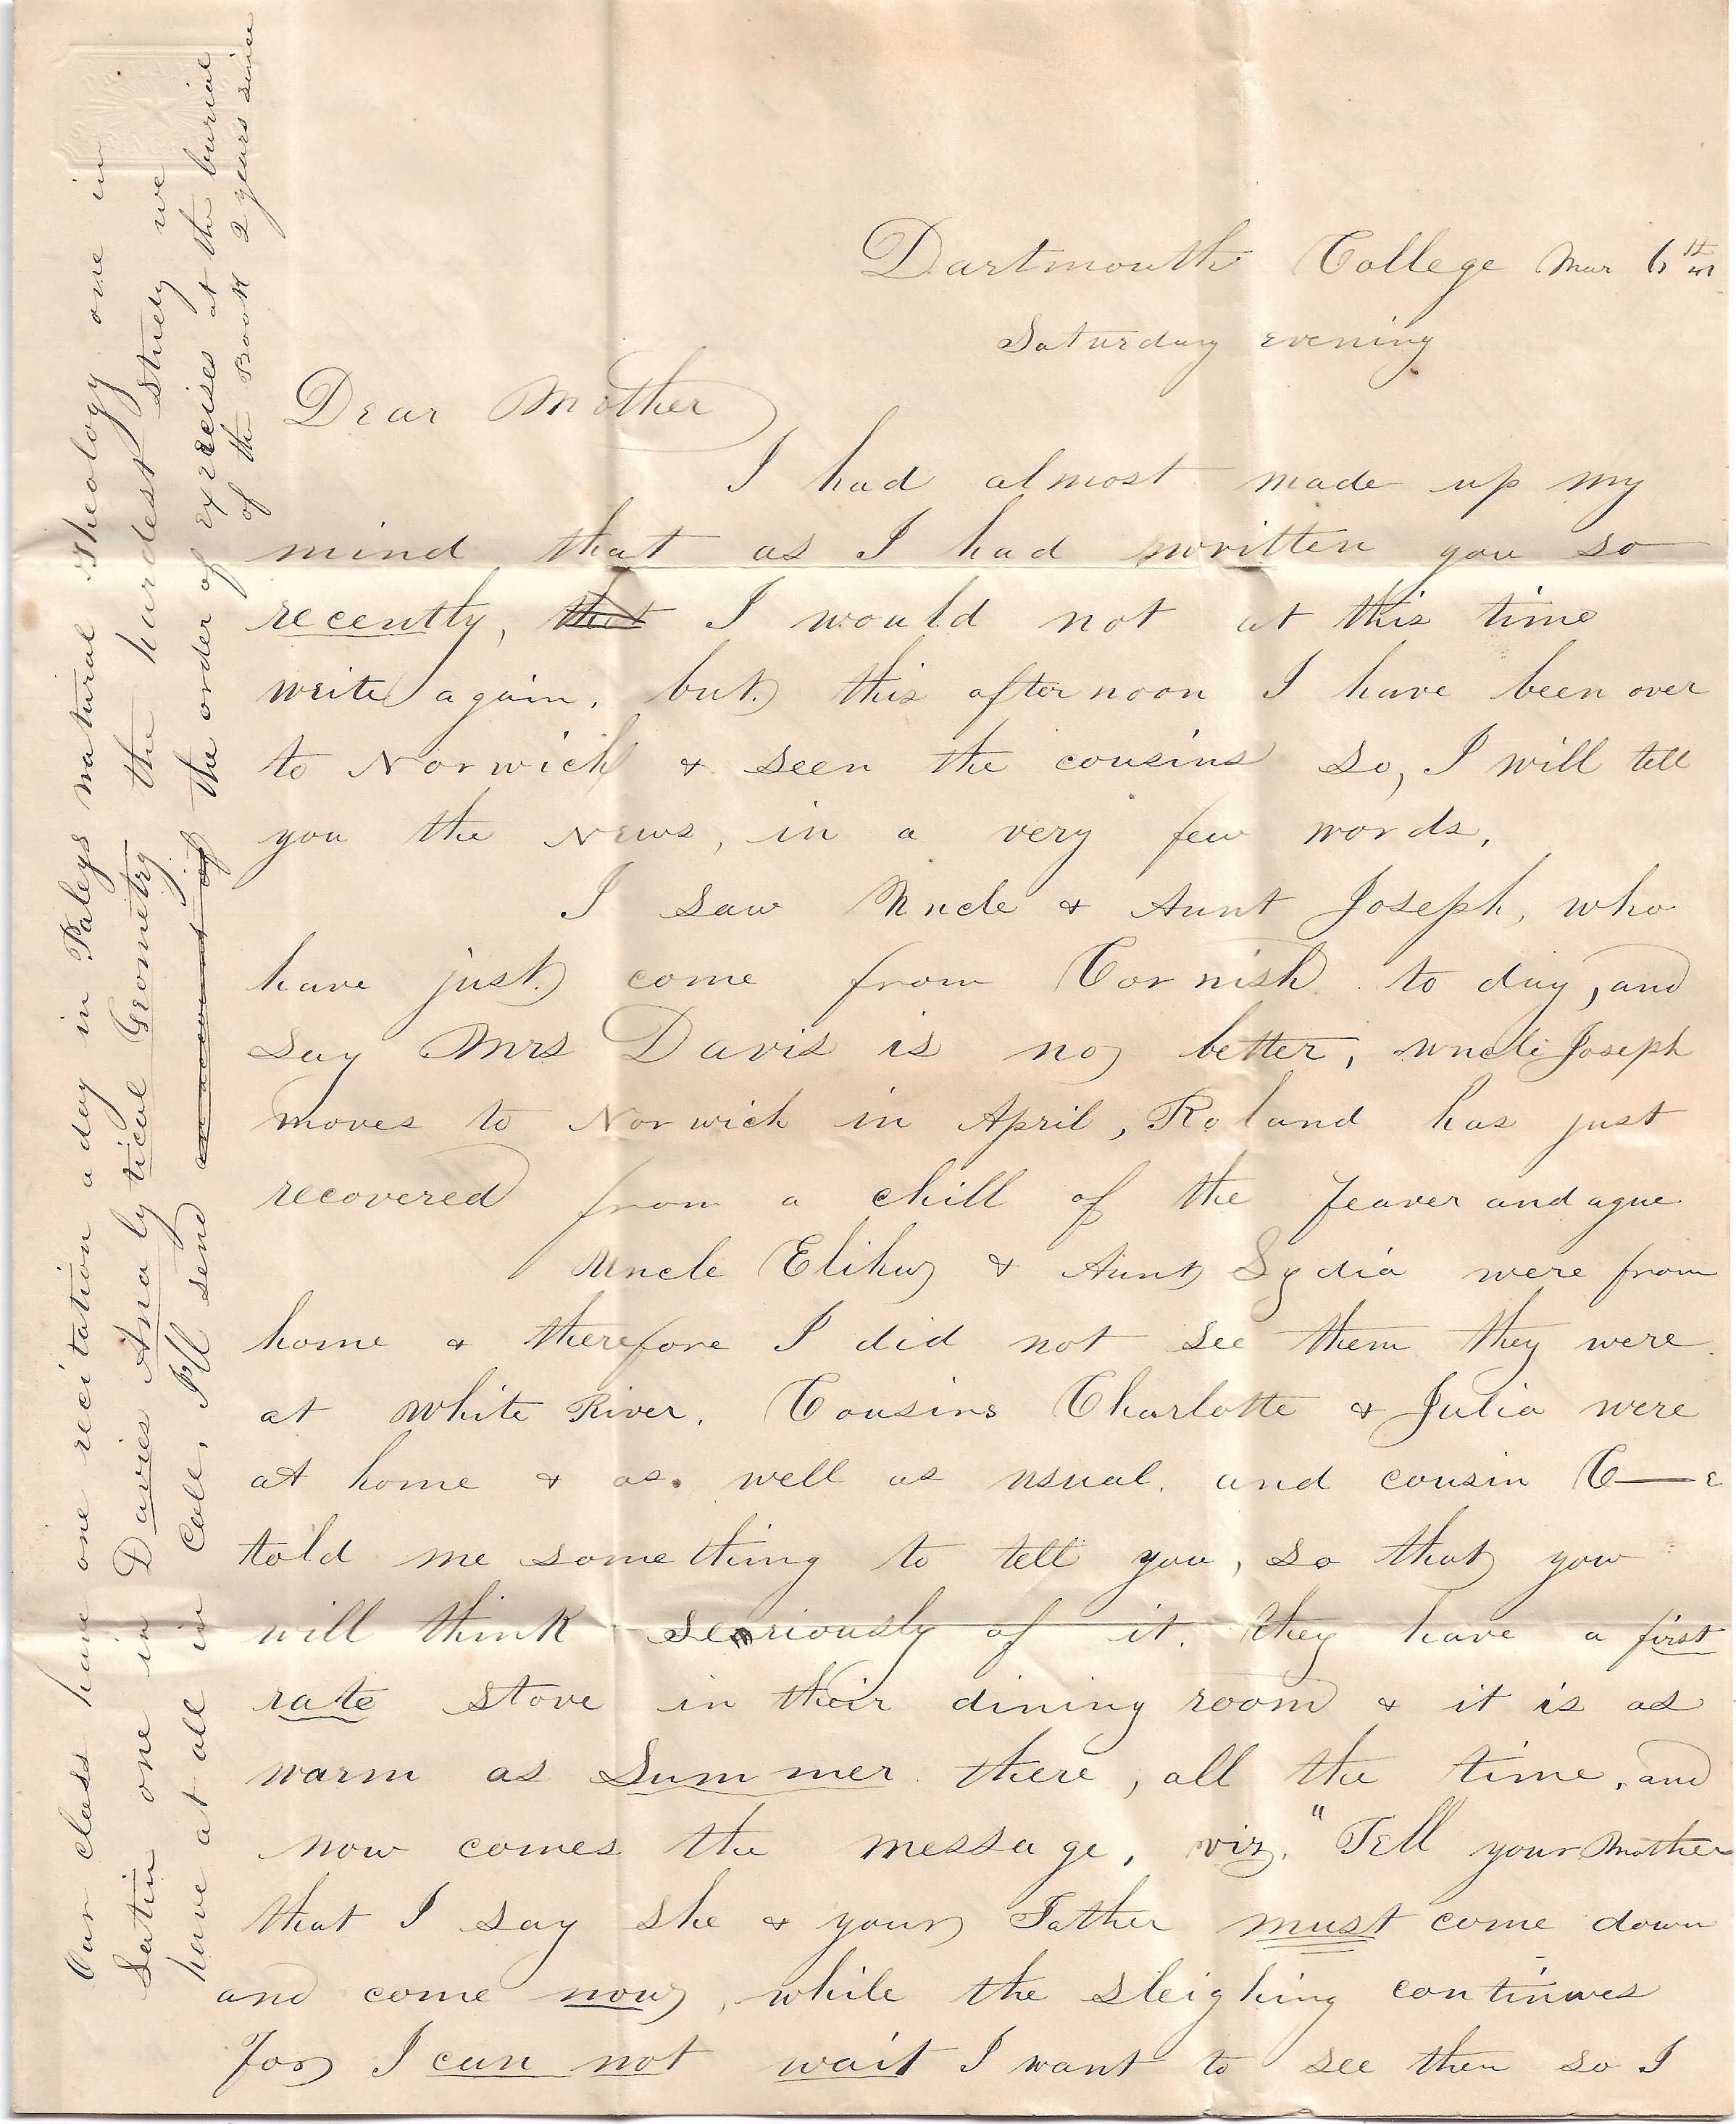 Dartmouth College Mar 6th
Saturday evening
Dear Mother
I had almost made up my
mind that as I had written you so
recently, that I would not at this time
write again, but this afternoon I have been over
to Norwich & seen the cousins so, I will tell
you the News, in a very few words,
I saw Uncle & Aunt Joseph, who
have just come from Cornish to day, and
say Mrs Davis is no better, uncle Joseph
moves to Norwich in April, Roland has just
recovered from a chill of the feaver and ague
Uncle Elihu & Aunt Lydia were from
home & therefore I did not see them they were
at White River. Cousins Charlotte & Julia were
at home & as well as usual. and cousin C—e
told me something to tell you, so that you
will think seriously of it. they have a first
rate stove in their dining room & it is as
warm as Summer there, all the time, and
now comes the message, viz. "Tell your Mother
that I say she & your Father must come down
and come now, while the sleighing continues
for I can not wait I want to see them so I
Our class have one recitation a day in Paleys natural Theology one in
Latin one in Davies Analytical Geometry the hardest study we
have at all in Col, I'll send an account of the order of exercises at the burial
of the Book 2 years since